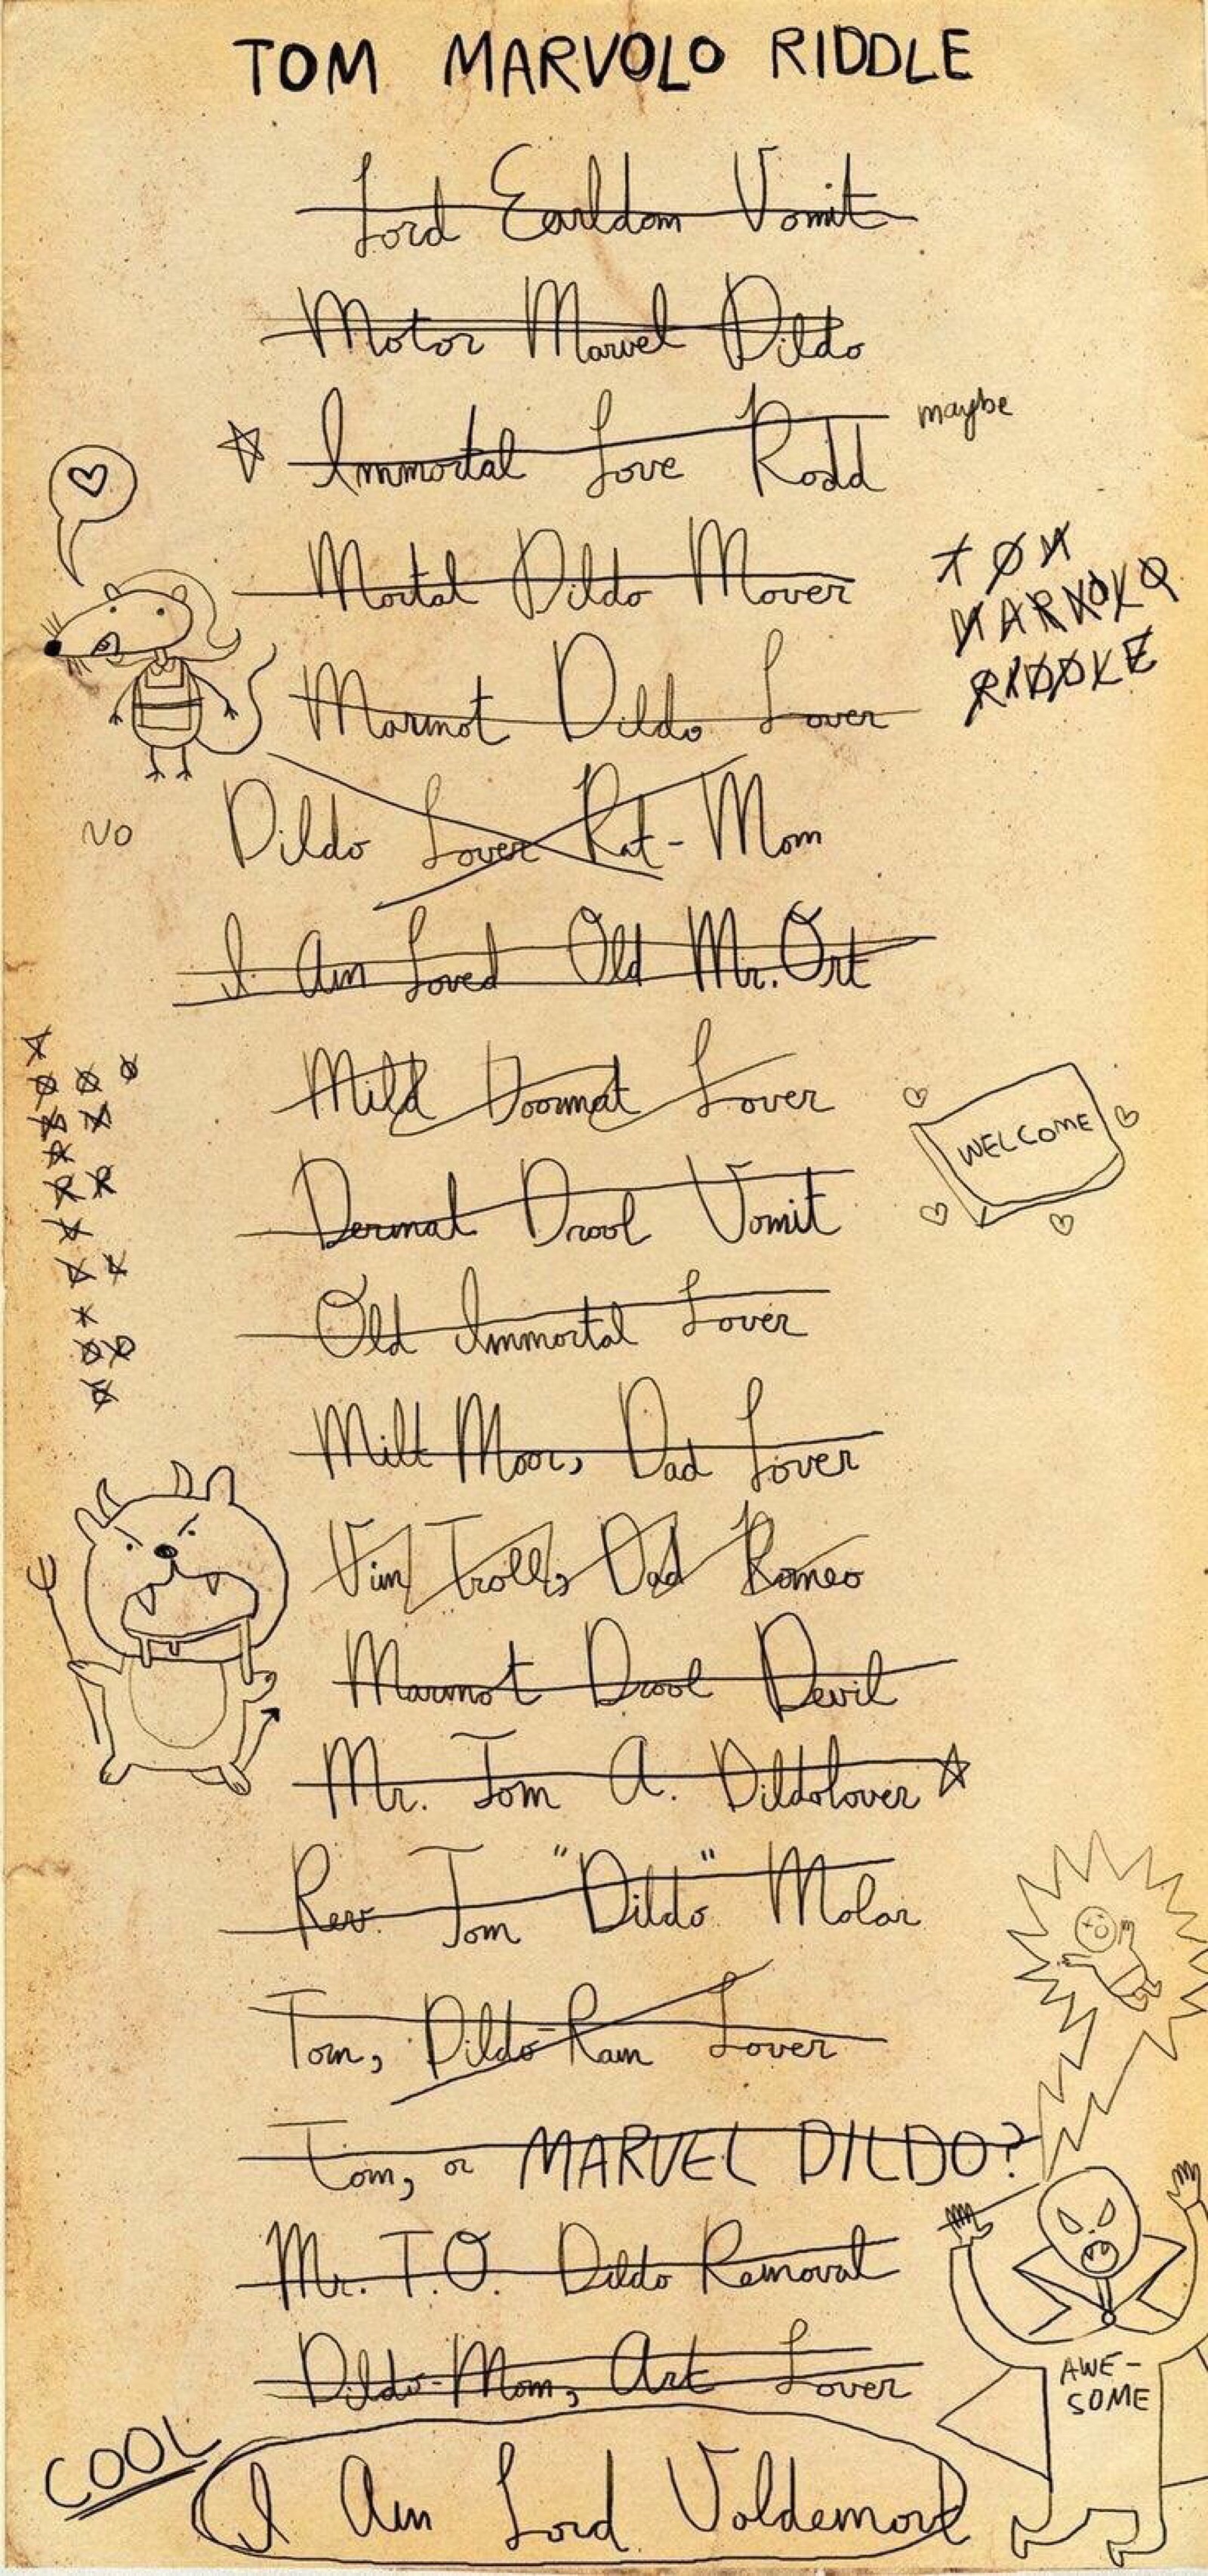 TOM MARVOLO RIDDLE
Lord Earldom Vomit
Motor Marvel Dildo
maybe
Immortal Love Rodd
Mortal Dildo Mover
TOM
MARVOLO
RIDDLE
Marmot Dildo Lover
NO Dildo Lover Rat-Mom
I Am Loved Old Mr. Ort
T
O O O
M M
A
R R
V
L L
I
D D
E
Mild Doormat Lover
WELCOME
Dermal Drool Vomit
Old Immortal Lover
Milt Moor, Dad Lover
Vim Troll, Dad Romeo
Marmot Drool Devil
Mr. Tom A. Dildolover
Rev. Tom "Dildo" Molar
Tom, Dildo-Ram Lover
Tom, or MARVEL DILDO?
Mr. T.O. Dildo Removal
Dildo-Mom, Art Lover
AWE-
SOME
COOL
I Am Lord Voldemort